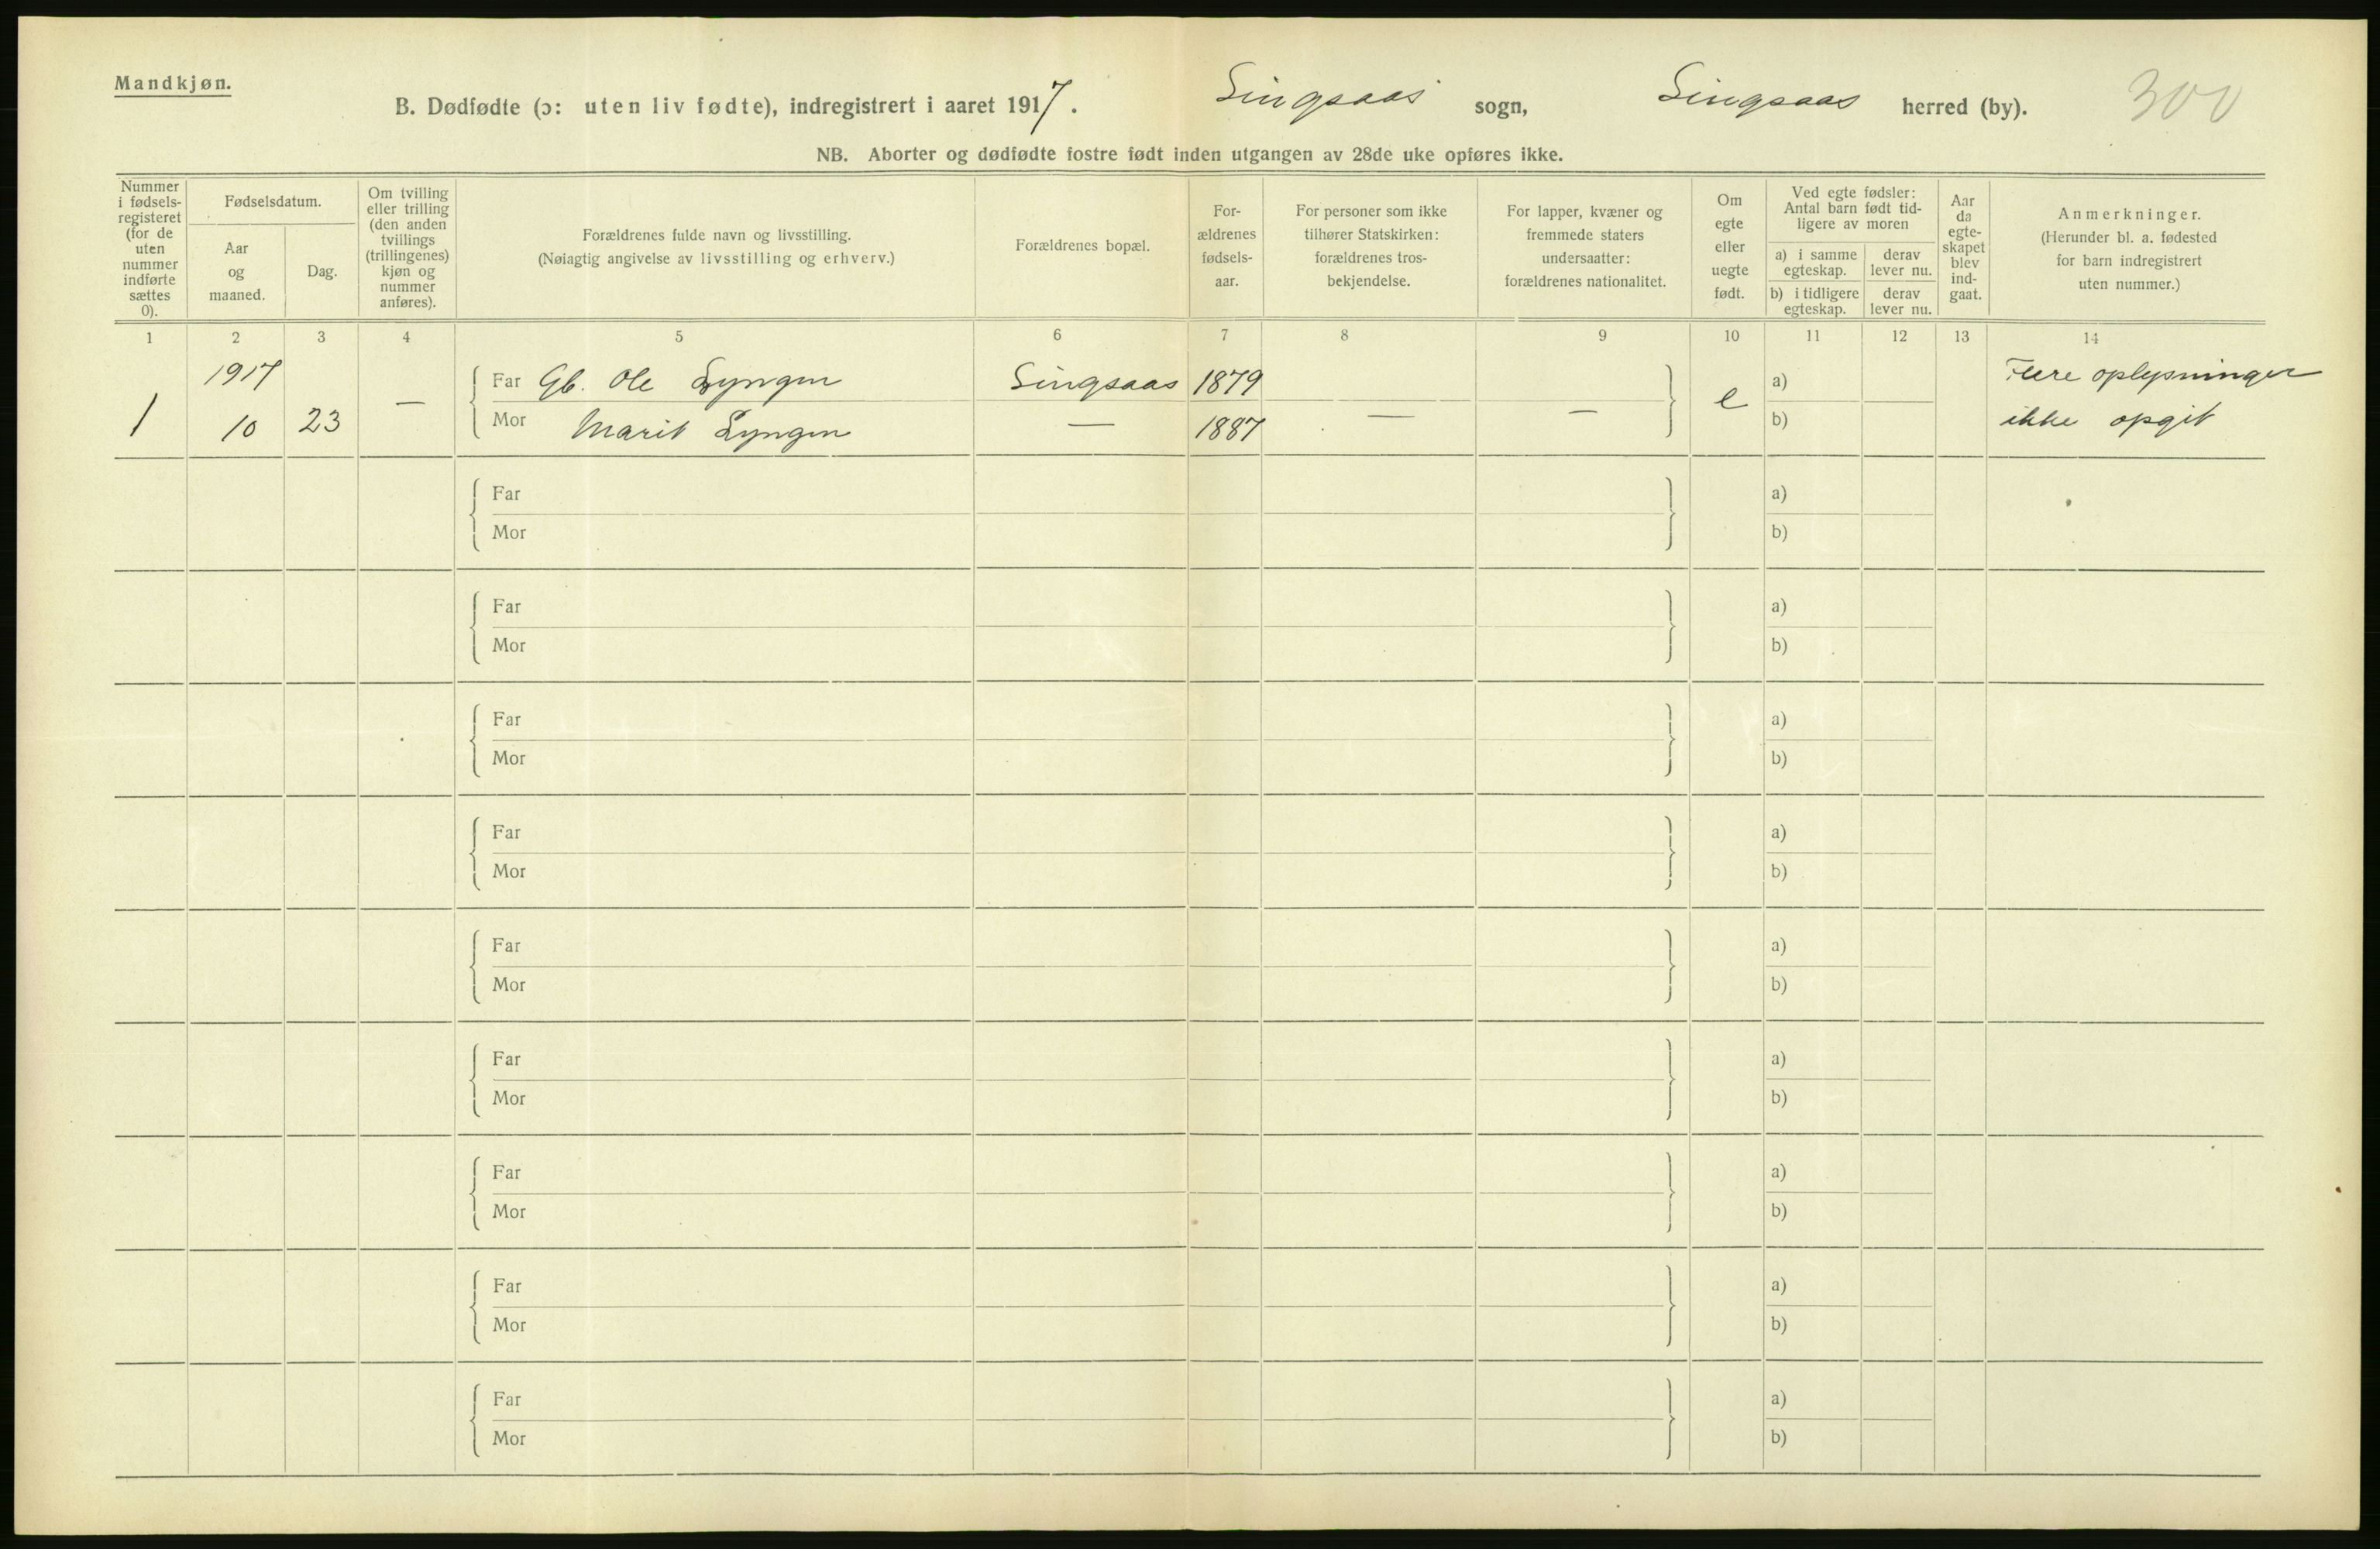 Mandkjøn.
B. Dødfødte (ɔ: uten liv fødte), indregistrert i aaret 1917. Singsaas sogn, Singsaas herred (by). 300
NB. Aborter og dødfødte fostre født inden utgangen av 28de uke opføres ikke.
Nummer i fødsels-registeret (for de uten nummer indførte sættes 0).
Fødselsdatum.
Aar og maaned.
Dag.
Om tvilling eller trilling (den anden tvillings (trillingenes) kjøn og nummer anføres).
Forældrenes fulde navn og livsstilling.
(Nøiagtig angivelse av livsstilling og erhverv.)
Forældrenes bopæl.
For-ældrenes fødsels-aar.
For personer som ikke tilhører Statskirken: forældrenes tros-bekjendelse.
For lapper, kvæner og fremmede staters undersaatter: forældrenes nationalitet.
Om egte eller uegte født.
Ved egte fødsler: Antal barn født tid-ligere av moren
a) i samme egteskap.
derav lever nu.
b) i tidligere egteskap.
derav lever nu.
Aar da egte-skapet blev ind-gaat.
Anmerkninger.
(Herunder bl. a. fødested for barn indregistrert uten nummer.)
1 2 3 4 5 6 7 8 9 10 11 12 13 14
1917 Far Gb. Ole Lyngen Singsaas 1879 a) Flere oplysninger
1 10 23 — Mor Marit Lyngen — 1887 — — e b) ikke opgit
Far a)
Mor b)
Far a)
Mor b)
Far a)
Mor b)
Far a)
Mor b)
Far a)
Mor b)
Far a)
Mor b)
Far a)
Mor b)
Far a)
Mor b)
Far a)
Mor b)